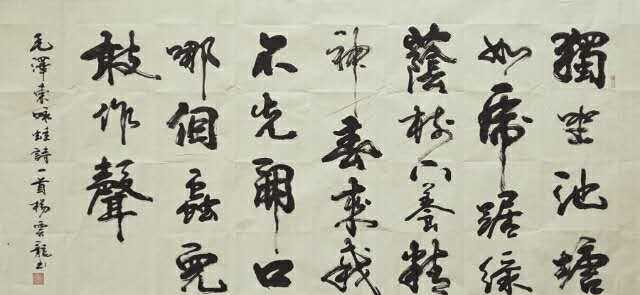 獨坐池塘
如虎踞綠
蔭樹下養精
神春來我
不先開口
哪個蟲兒
敢作聲
毛澤東咏蛙詩一首楊雲龍書